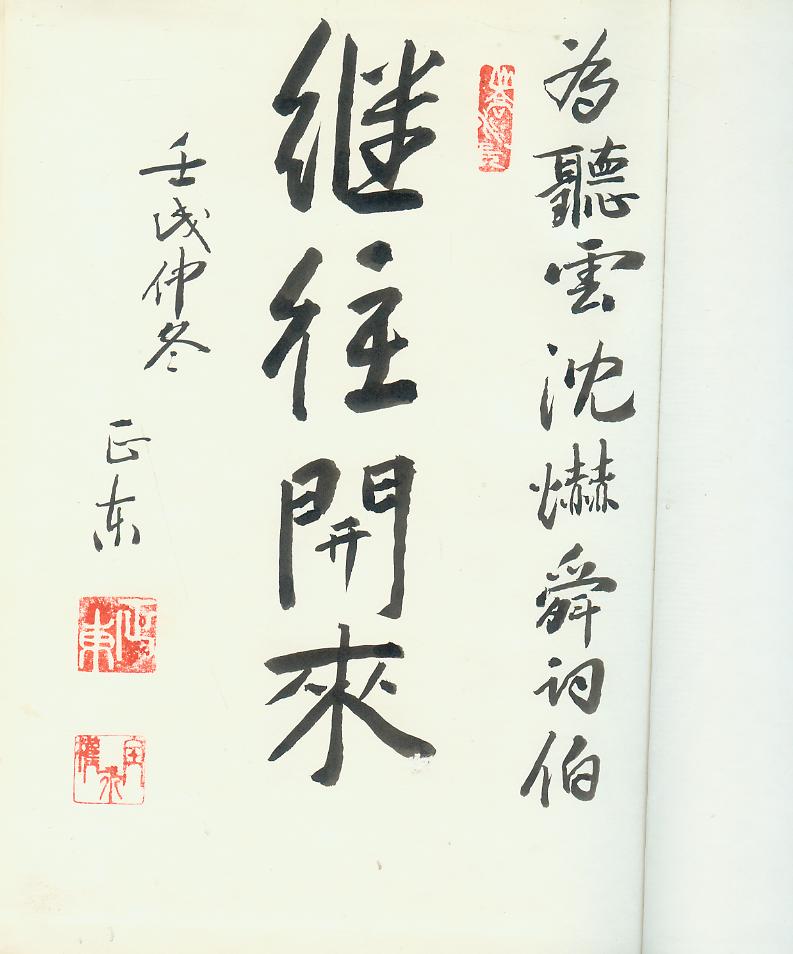 為聽雲沈爀舜詞伯
继往開來
壬戌仲冬
正东